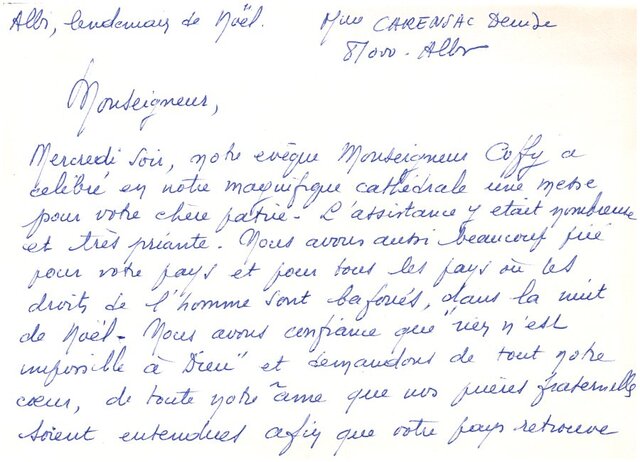 Albi, lendemain de Noël. Mme CARENSAC Denise
81000 - Albi
Monseigneur,
Mercredi soir, notre evêque Monseigneur Coffy a
célébré en notre magnifique cathédrale une messe
pour votre chère patrie - L'assistance y etait nombreuse
et très priante. Nous avons aussi beaucoup prié
pour votre pays et pour tous les pays où les
droits de l'homme sont bafoués, dans la nuit
de Noël - Nous avons confiance que "rien n'est
impossible à Dieu" et demandons de tout notre
cœur, de toute notre âme que nos prières fraternelles
soient entendues afin que votre pays retrouve